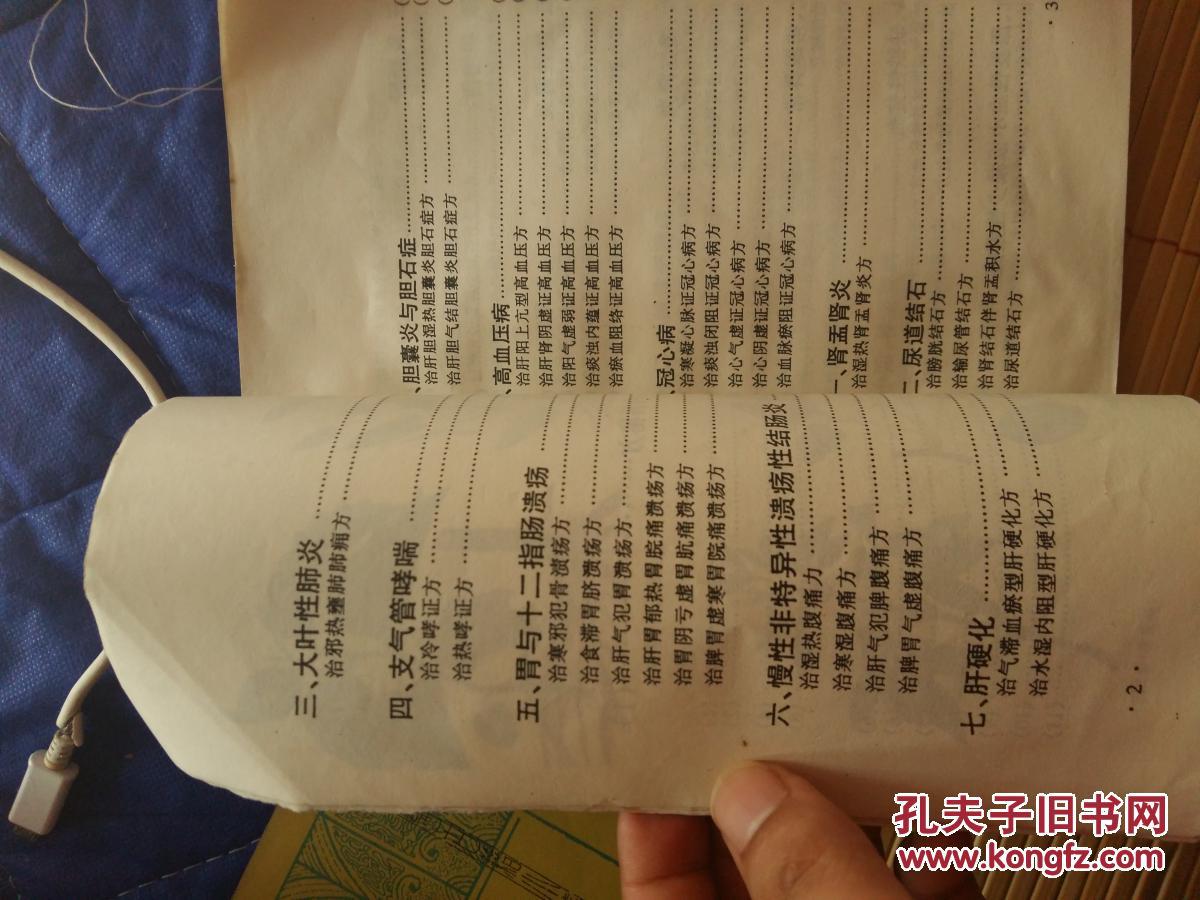 三、大叶性肺炎
治邪热壅肺肺痈方
四、支气管哮喘
治冷哮证方
治热哮证方
五、胃与十二指肠溃疡
治寒邪犯骨溃疡方
治食滞胃脐溃疡方
治肝气犯胃溃疡方
治肝胃郁热胃脘痛溃疡方
治胃阴亏虚胃肮痛溃疡方
治脾胃虚寒胃院痛溃疡方
六、慢性非特异性溃疡性结肠炎
治湿热腹痛力
治寒湿腹痛方
治肝气犯脾腹痛方
治脾胃气虚腹痛方
七、肝硬化
治气滞血瘀型肝硬化方
治水湿内阻型肝硬化方
·2·
、胆囊炎与胆石症
治肝胆湿热胆囊炎胆石症方
治肝胆气结胆囊炎胆石症方
、高血压病
治肝阳上亢型高血压方
治肝肾阴虚证高血压方
治阳气虚弱证高血压方
治痰浊内蕴证高血压方
治瘀血阻络证高血压方
、冠心病
治寒凝心脉证冠心病方
治痰浊闭阻证冠心病方
治心气虚证冠心病方
治心阴虚证冠心病方
治血脉瘀阻证冠心病方
一、肾盂肾炎
治湿热肾盂肾炎方
二、尿道结石
治膀胱结石方
治输尿管结石方
治肾结石伴肾盂积水方
治尿道结石方
·3
孔夫子旧书网
www.kongfz.com